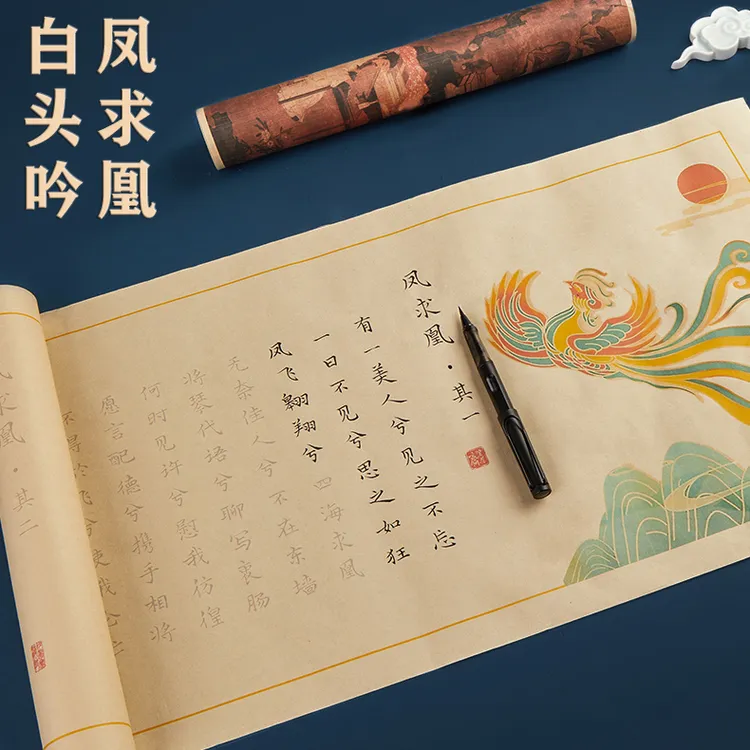 凤求凰
白头吟
凤求凰·其一
有一美人兮见之不忘
一日不见兮思之如狂
凤飞翱翔兮四海求凰
无奈佳人兮不在东墙
将琴代语兮聊写衷肠
何时见许兮慰我彷徨
愿言配德兮携手相将
不得於飞兮使我
求凰·其二